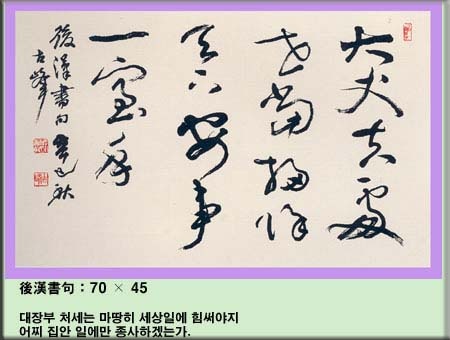 大丈夫處
世當掃除
天下安事
一室乎
後漢書句 辛巳秋
古峯
後漢書句 : 70 × 45
대장부 처세는 마땅히 세상일에 힘써야지
어찌 집안 일에만 종사하겠는가.